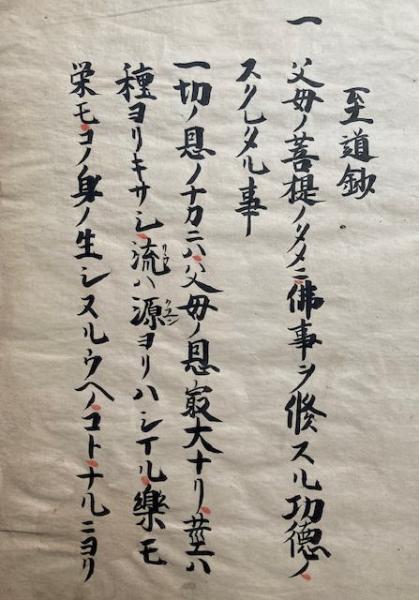 至道鈔
一 父母ノ菩提ノタメニ佛事ヲ修スル功德ノ
スクレタル事
一切ノ恩ノナカニハ父母ノ恩㝡大ナリ莖ハ
種ヨリキサシ流ハ源ヨリハシマル樂モ
栄モコノ身ノ生シスルウヘノコトナルニヨリ